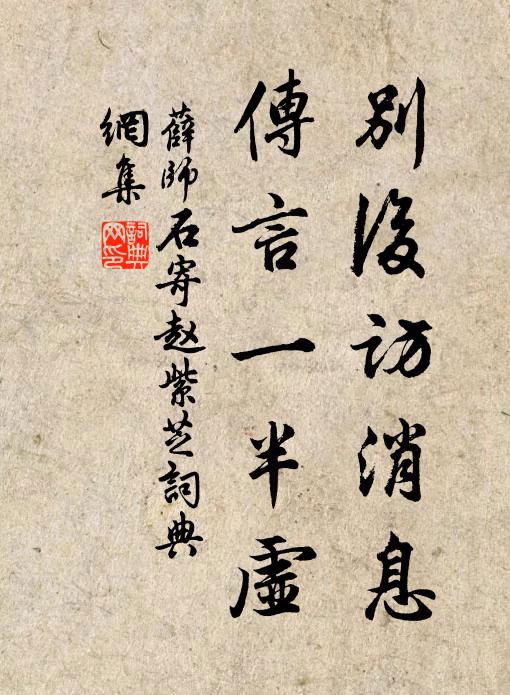 別後訪消息
傳言一半虛
薛師石寄赵紫芝詞典
網集
詞典网印